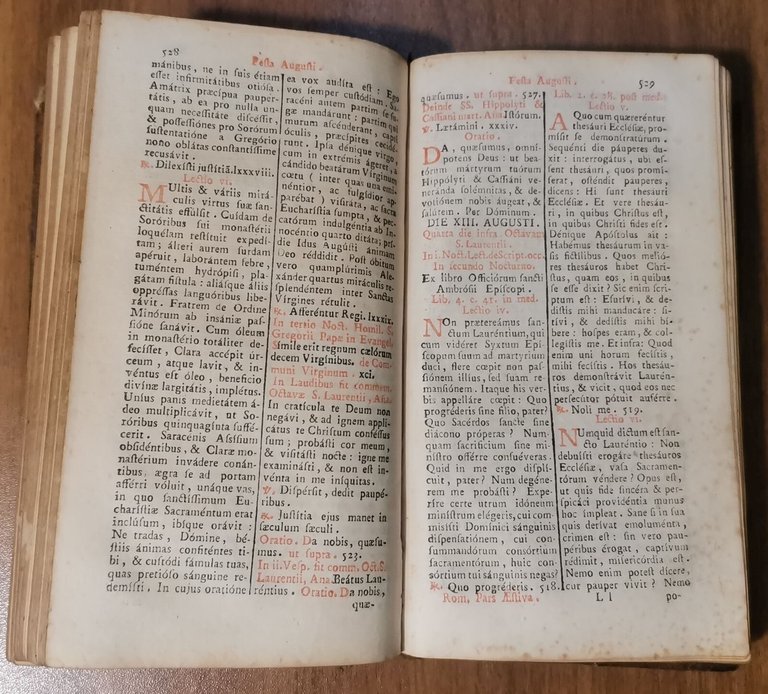 528
Festa Augusti.
mánibus, ne in suis étiam
esset infirmitátibus otiósa.
Amátrix præcípua paupertátis,
tátis, ab ea pro nulla unquam
quam necessitáte discessit,
& possessiónes pro Sorórum
sustentatione à Gregório
nono oblátas constantíssime
recusávit.
℟. Dilexísti justítiã. lxxxviii.
Lectio vi.
MUltis & váriis miráculis
culis virtus suæ sanctitátis
ctitátis effúlsit. Cuidam de
Soróribus sui monastérii
loquélam restítuit expedítam;
tam; álteri aurem surdam
apéruit, laborántem febre,
tuméntem hydrópisi, plagátam
gátam fístula: aliásque áliis
oppréssas languóribus liberávit.
rávit. Fratrem de Ordine
Minórum ab insániæ passióne
sióne sanávit. Cum óleum
in monastério totáliter defecísset,
fecísset, Clara accépit úrceum,
ceum, atque lavit, & invéntus
véntus est óleo, benefício
divínæ largitátis, implétus.
Uníus panis medietátem ádeo
deo multiplicávit, ut Soróribus
róribus quinquagínta sufféceit.
cerit. Saracénis Assísium
obsidéntibus, & Claræ monastérium
nastérium invádere conántibus,
tibus, ægra se ad portam
afférri vóluit, unáque vas,
in quo sanctíssimum Eucharístiæ
charístiæ Sacraméntum erat
inclúsum, ibíque orávit:
Ne tradas, Dómine, béstiis
stiis ánimas confiténtes tibi,
bi, & custódi fámulas tuas,
quas pretióso sánguine redemísti.
demísti. In cujus oratióne
ea vox audíta est: Ego
vos semper custódiam. Saracéni
racéni autem partim se fugæ
gæ mandárunt: partim qui
murum ascénderant, capti
óculis, præcípites cecidérunt.
runt. Ipsa dénique virgo,
cum in extrémis ágeret, a
cándido beatárum Vírginum
cœtu (inter quas una eminéntior,
néntior, ac fulgídior apparébat)
parébat) visitáta, ac sacra
Eucharístia sumpta, & peccatórum
catórum indulgéntia ab Innocéntio
nocéntio quarto ditáta; prídie
die Idus Augústi ánimam
Deo réddidit. Post óbitum
vero quamplúrimis Alexánder
xánder quartus miráculis resplendéntem
plendéntem inter Sanctas
Vírgines rétulit.
℟. Afferéntur Regi. lxxxix.
In tertio Noct. Homil. S.
Gregorii Papæ in Evangel.
Símile erit regnum cælórum
decem Virgínibus. de Communi
muni Virginum. xci.
In Laudibus fit commem.
Octavæ S. Laurentii, Aña.
In cratícula te Deum non
negávi, & ad ignem applicátus
cátus te Christum conféssus
sum; probásti cor meum,
& visitásti nocte: igne me
examinásti, & non est invénta
vénta in me iníquitas.
℣. Dispérsit, dedit paupéribus.
ribus.
℟. Justítia ejus manet in
sæculum sæculi.
Oratio. Da nobis, quæsumus.
mus. ut supra. 523.
In ii. Vesp. fit comm. Oct. S.
Laurentii, Ana. Beátus Lauréntius.
réntius. Oratio. Da nobis,
quæ-
Festa Augusti.
529
quæsumus. ut supra. 527.
Deinde SS. Hippolyti &
Cassiani mart. Aña Istórum.
℣. Lætámini. xxxiv.
Oratio.
DA, quæsumus, omnípotens
potens Deus: ut beatórum
tórum mártyrum tuórum
Hippólyti & Cassiáni veneránda
neránda solémnitas, & devotiónem
votiónem nobis áugeat, &
salútem. Per Dóminum.
DIE XIII. AUGUSTI.
Quarta die infra Octavam
S. Laurentii.
In i. Noct. Lect. de Script. occ.
In secundo Nocturno.
Ex libro Officiórum sancti
Ambrósii Epíscopi.
Lib. 1. c. 41. in med.
Lectio iv.
NOn prætereámus sanctum
ctum Lauréntium, qui
cum vidéret Syxtum Epíscopum
scopum suum ad martyrium
duci, flere cœpit non passiónem
siónem illíus, sed suam remansiónem.
mansiónem. Itaque his verbis
bis appelláre cœpit: Quo
progréderis sine fílio, pater?
Quo Sacérdos sancte sine
diácono próperas? Numquam
quam sacrifícium sine minístro
nistro offérre consuéveras.
Quid in me ergo displícuit,
cuit, pater? Num degénerem
rem me probásti? Experíre
ríre certe utrum idóneum
minístrum elégeris, cui commisísti
misísti Domínici sánguinis
dispensatiónem, cui consummandórum
summandórum consórtium
sacramentórum, huic consórtium
sórtium tui sánguinis negas?
℟. Quo progréderis. 518.
Rom. Pars Æstiva.
Lib. 2. c. 28. post med.
Lectio v.
A Quo cum quæreréntur
thesáuri Ecclésiæ, promísit
mísit se demonstratúrum.
Sequénti die páuperes duxit:
xit: interrogátus, ubi essent
sent thesáuri, quos promíserat,
serat, osténdit páuperes,
dicens: Hi sunt thesáuri
Ecclésiæ. Et vere thesáuri,
ri, in quibus Christus est,
in quibus Christi fides est.
Dénique Apóstolus ait:
Habémus thesáurum in vasis
sis fictílibus. Quos melióres
res thesáuros habet Christus,
stus, quam eos, in quibus
se esse dixit? Sic enim scriptum
ptum est: Esurívi, & dedístis
dístis mihi manducáre: sitívi,
tívi, & dedístis mihi bíbere:
bere: hospes eram, & collegístis
legístis me. Et infra: Quod
enim uni horum fecístis,
mihi fecístis. Hos thesáuros
ros demonstrávit Lauréntius,
tius, & vicit, quod eos nec
persecútor pótuit auférre.
℟. Noli me. 519.
Lectio vi.
NUmquid dictum est sancto
cto Lauréntio: Non
debuísti erogáre thesáuros
Ecclésiæ, vasa Sacramentórum
tórum véndere? Opus est,
ut quis fide sincéra & perspicáci
spicáci providéntia munus
hoc ímpleat. Sane si in sua
quis derívat emoluménta,
crimen est: sin vero paupéribus
péribus érogat, captívum
rédimit, misericórdia est.
Nemo enim potest dícere,
cur pauper vivit? Nemo
L l
po-